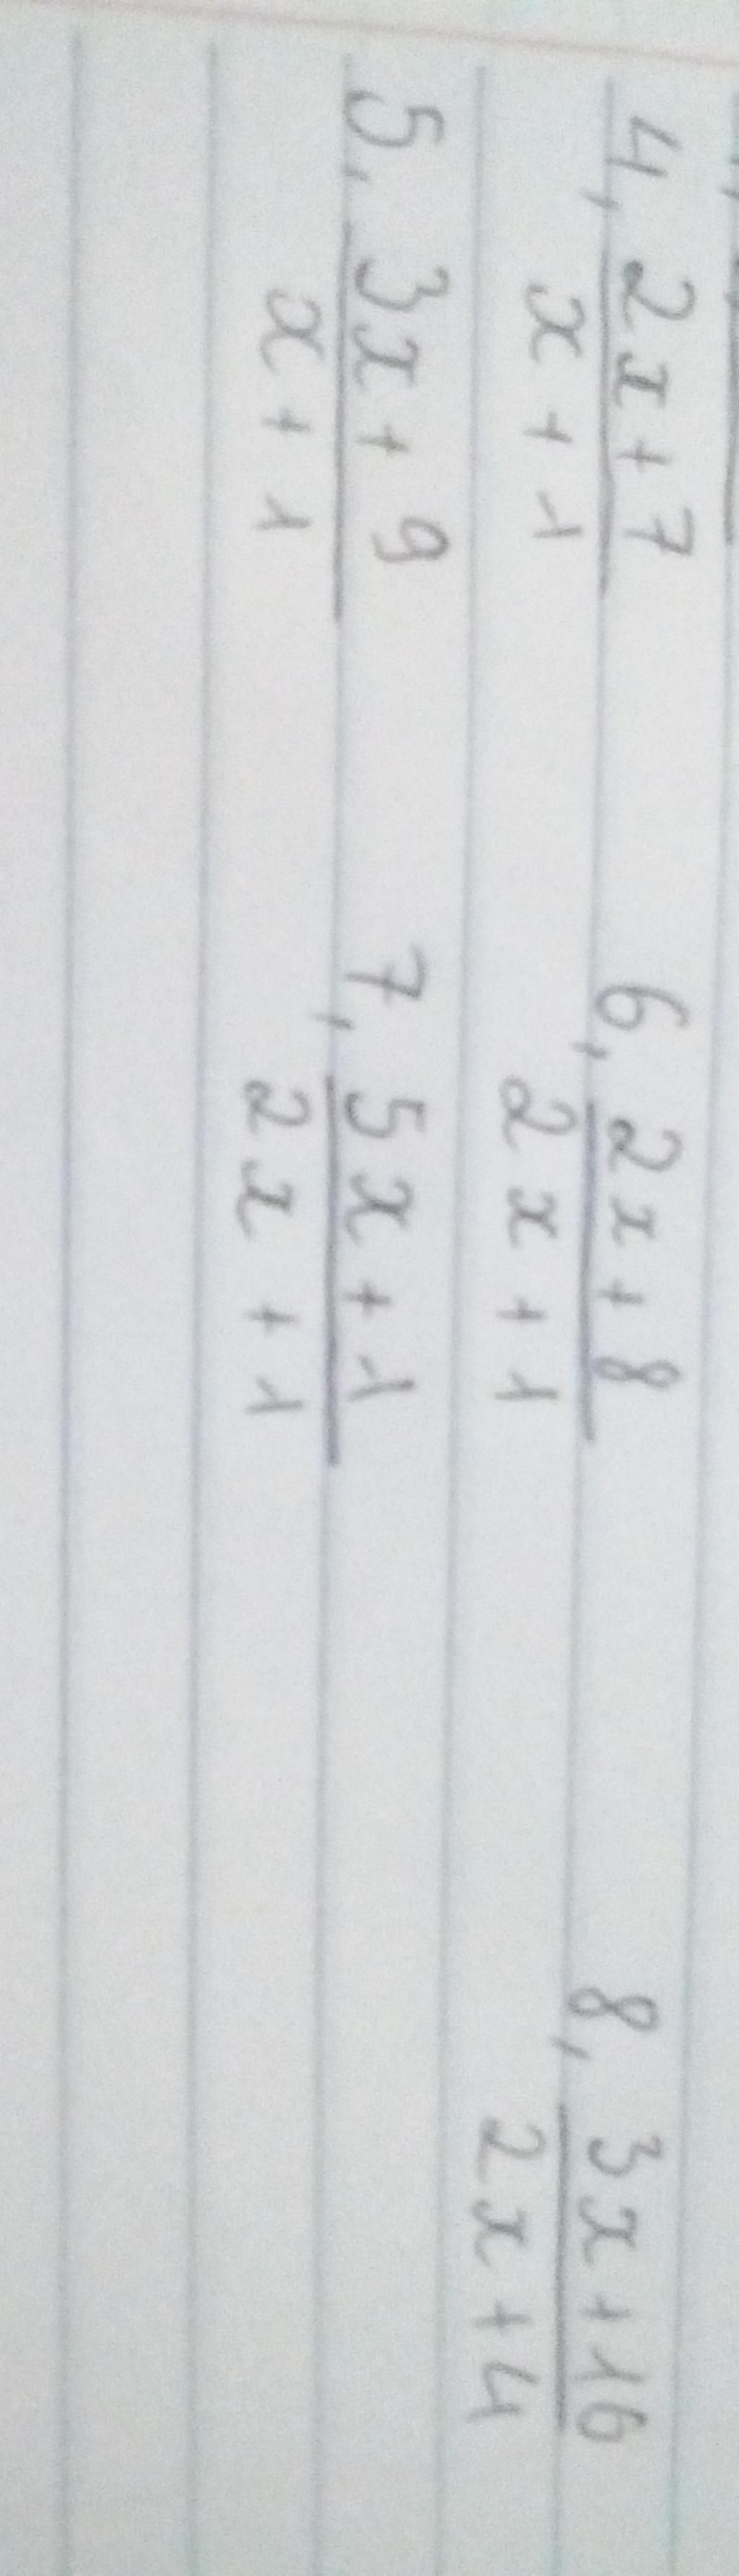 4, 2x+7 6, 2x+8 8, 3x+16
x+1 2x+1 2x+4
5, 3x+9 7, 5x+1
x+1 2x+1